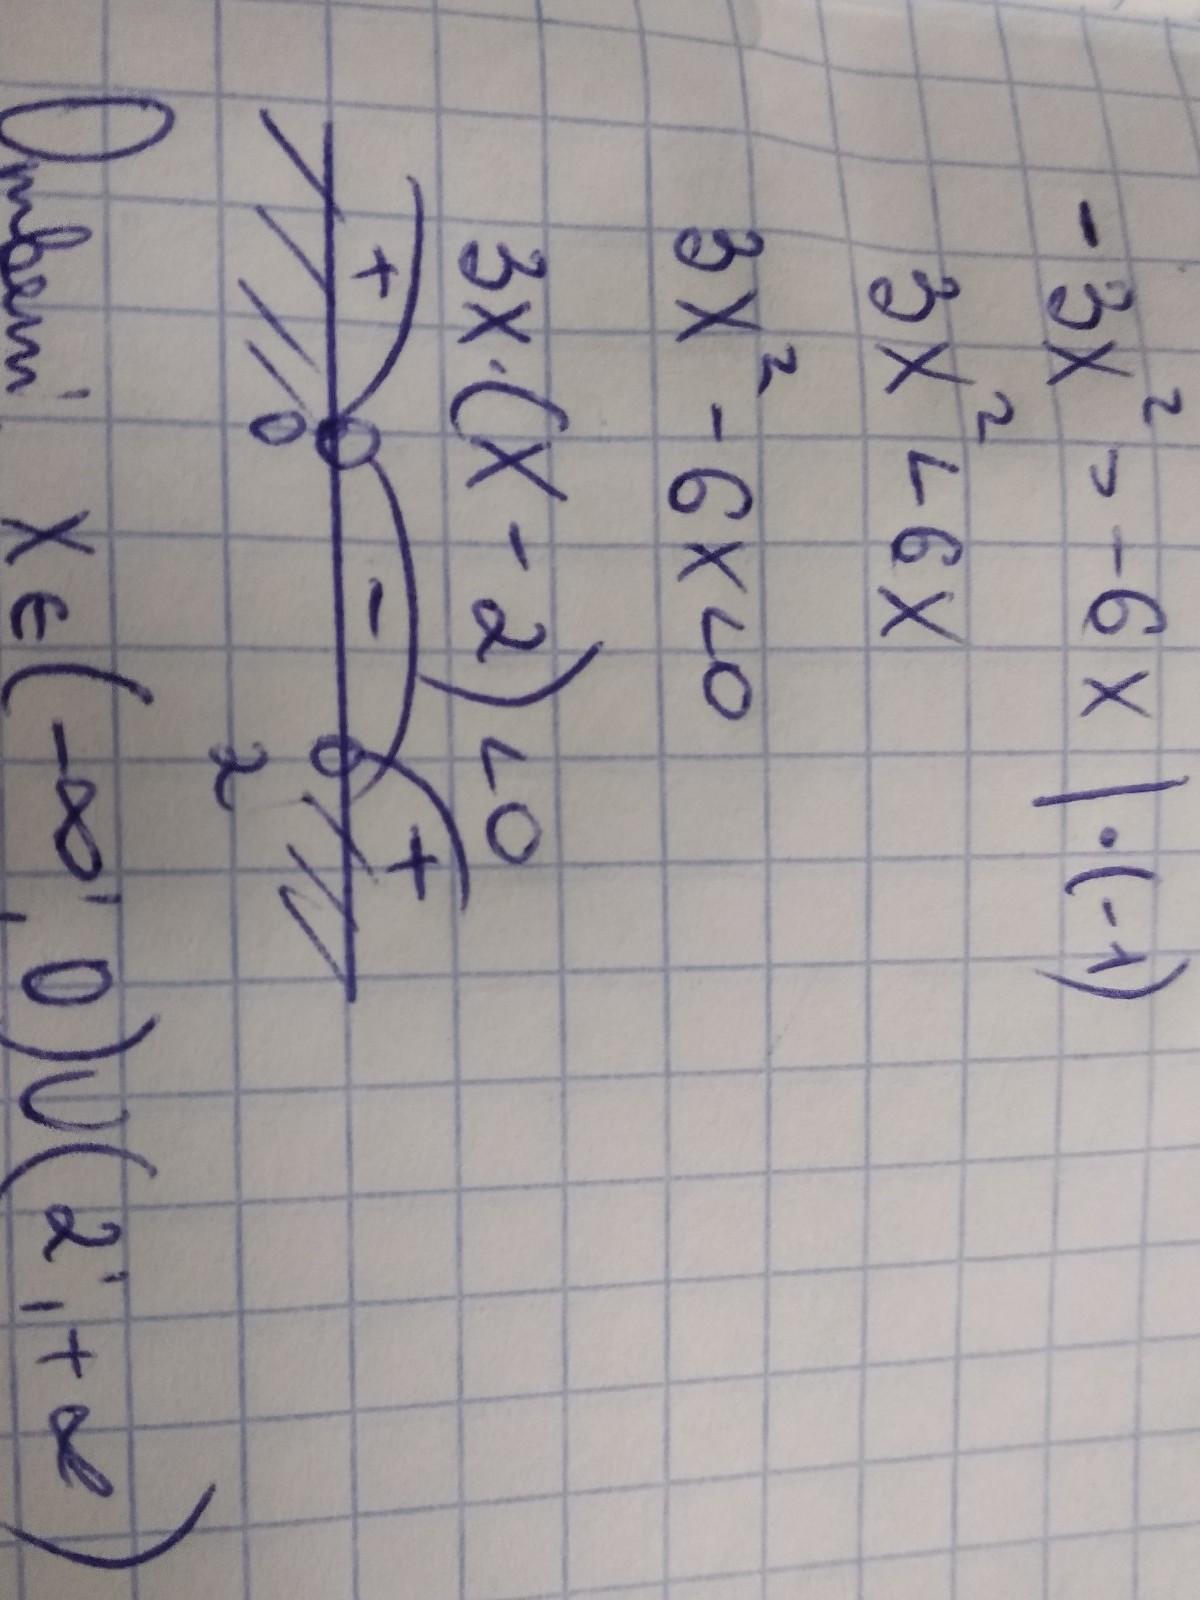 -3x² > -6x | · (-1)
3x² < 6x
3x² - 6x < 0
3x · (x - 2) < 0
+ - +
0 2
Ответ: x ∈ (-∞; 0) ∪ (2; +∞)